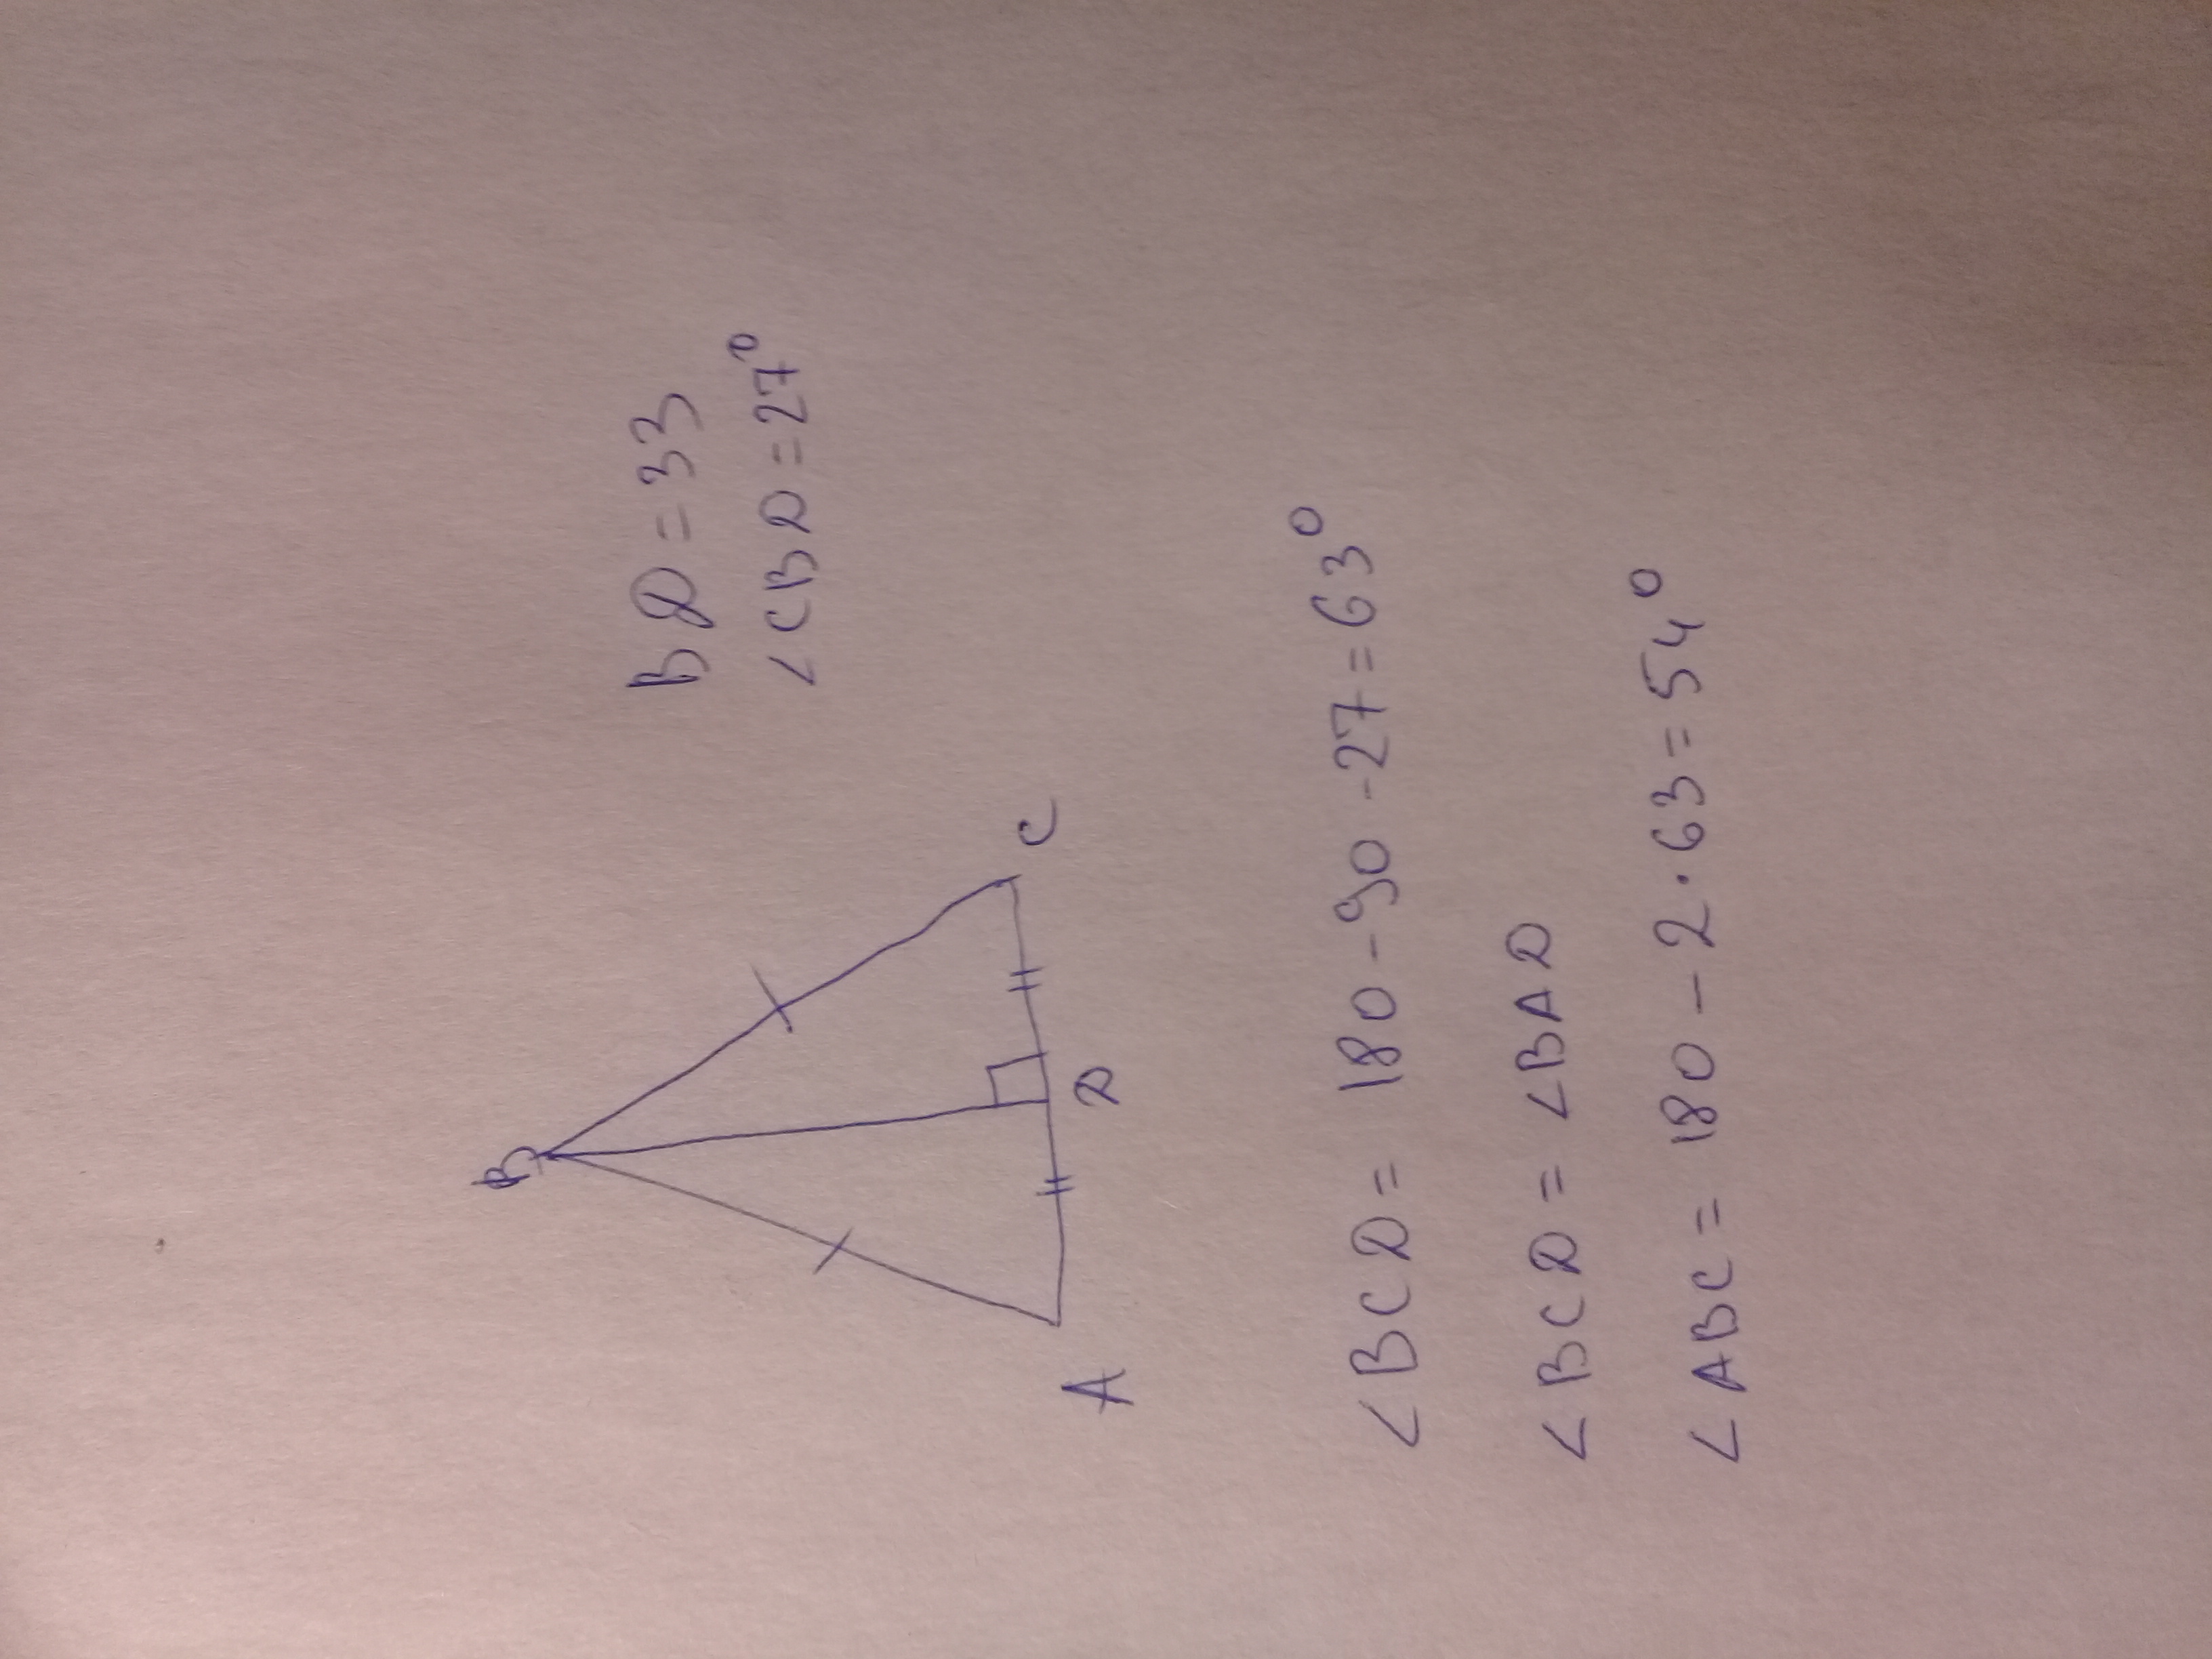 B
A
D
C
BD = 33
∠CBD = 27°
∠BCD = 180 - 90 - 27 = 63°
∠BCD = ∠BAD
∠ABC = 180 - 2 · 63 = 54°